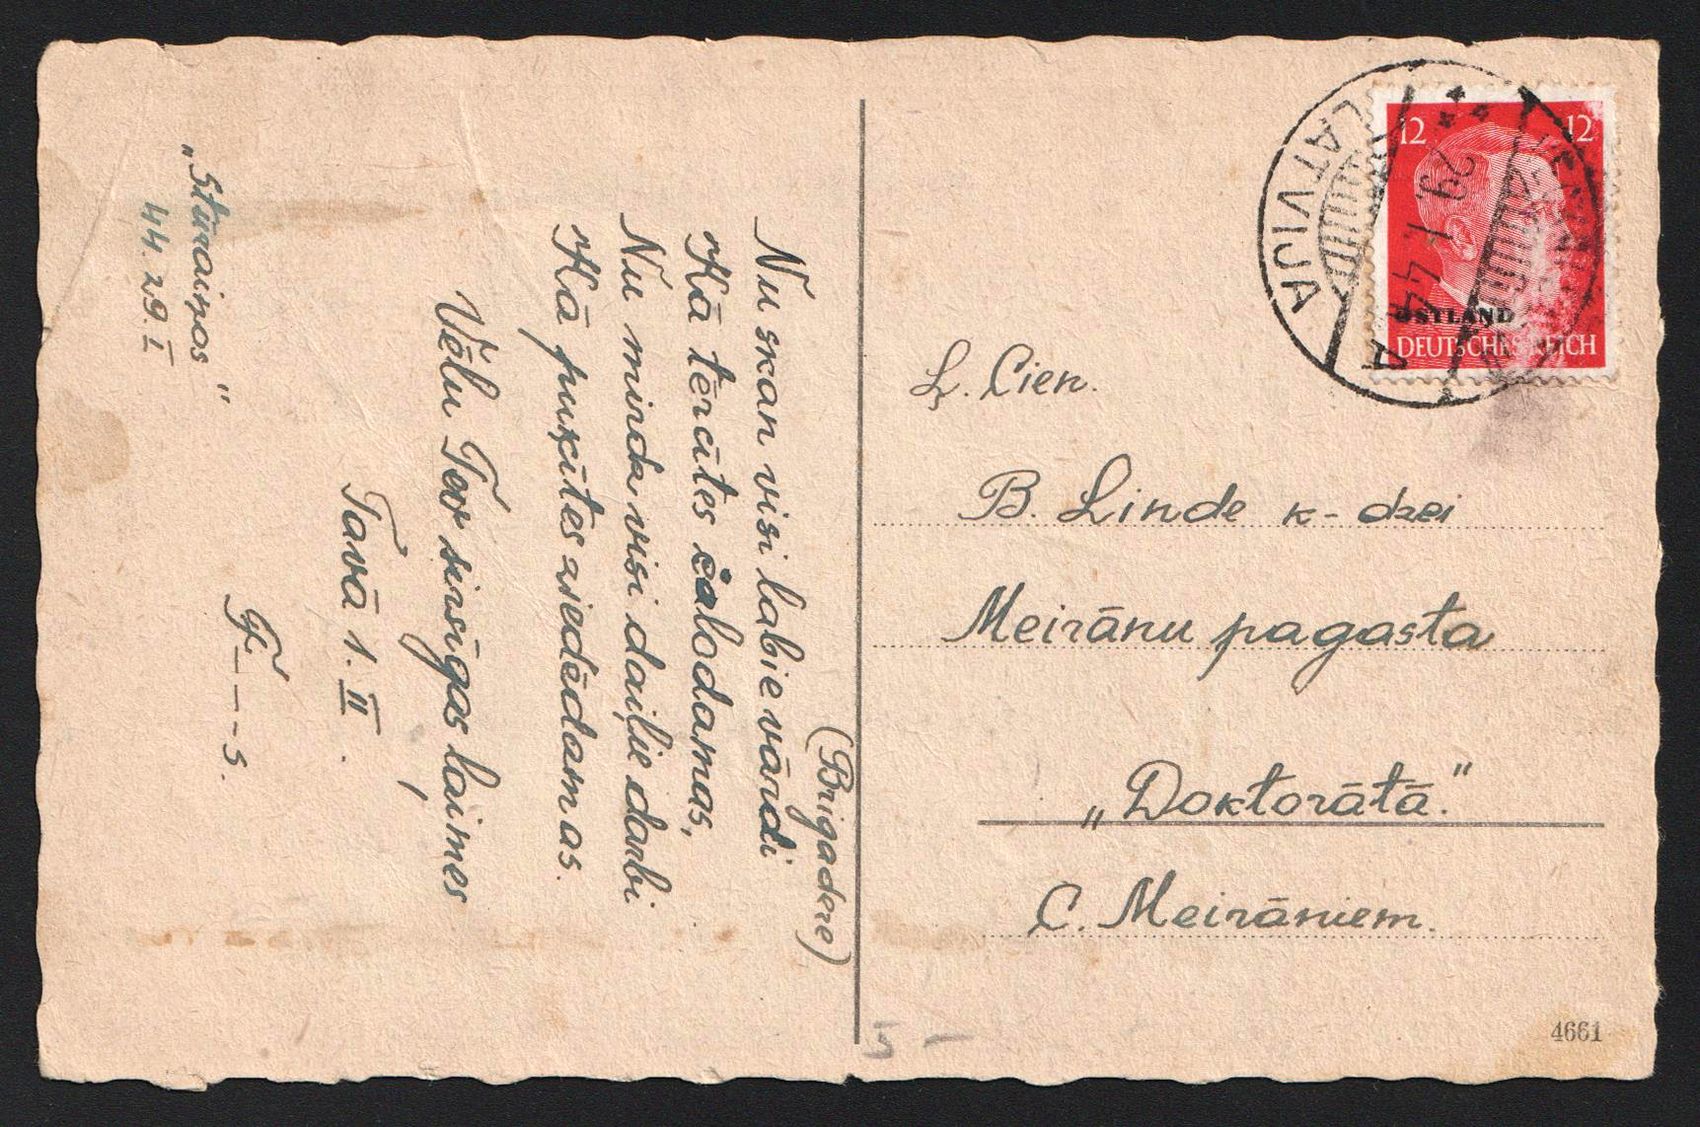 Nu skan visi labie vārdi
Kā tērcītes čalodamas,
Nu mirdz visi daiļie darbi
Kā puķītes ziedēdamas.
(Brigadere)
Vēlu Tev sirsīgas laimes
Tavā 1. II.
F - - - s.
„Stūraiņos"
44. 29. I
Ļ. Cien.
B. Linde k-dzei
Meirānu pagasta
„Doktorātā."
C. Meirāniem.
12 12
OSTLAND
DEUTSCHES REICH
LATVIJA
29 1 44
A
4661
5 -